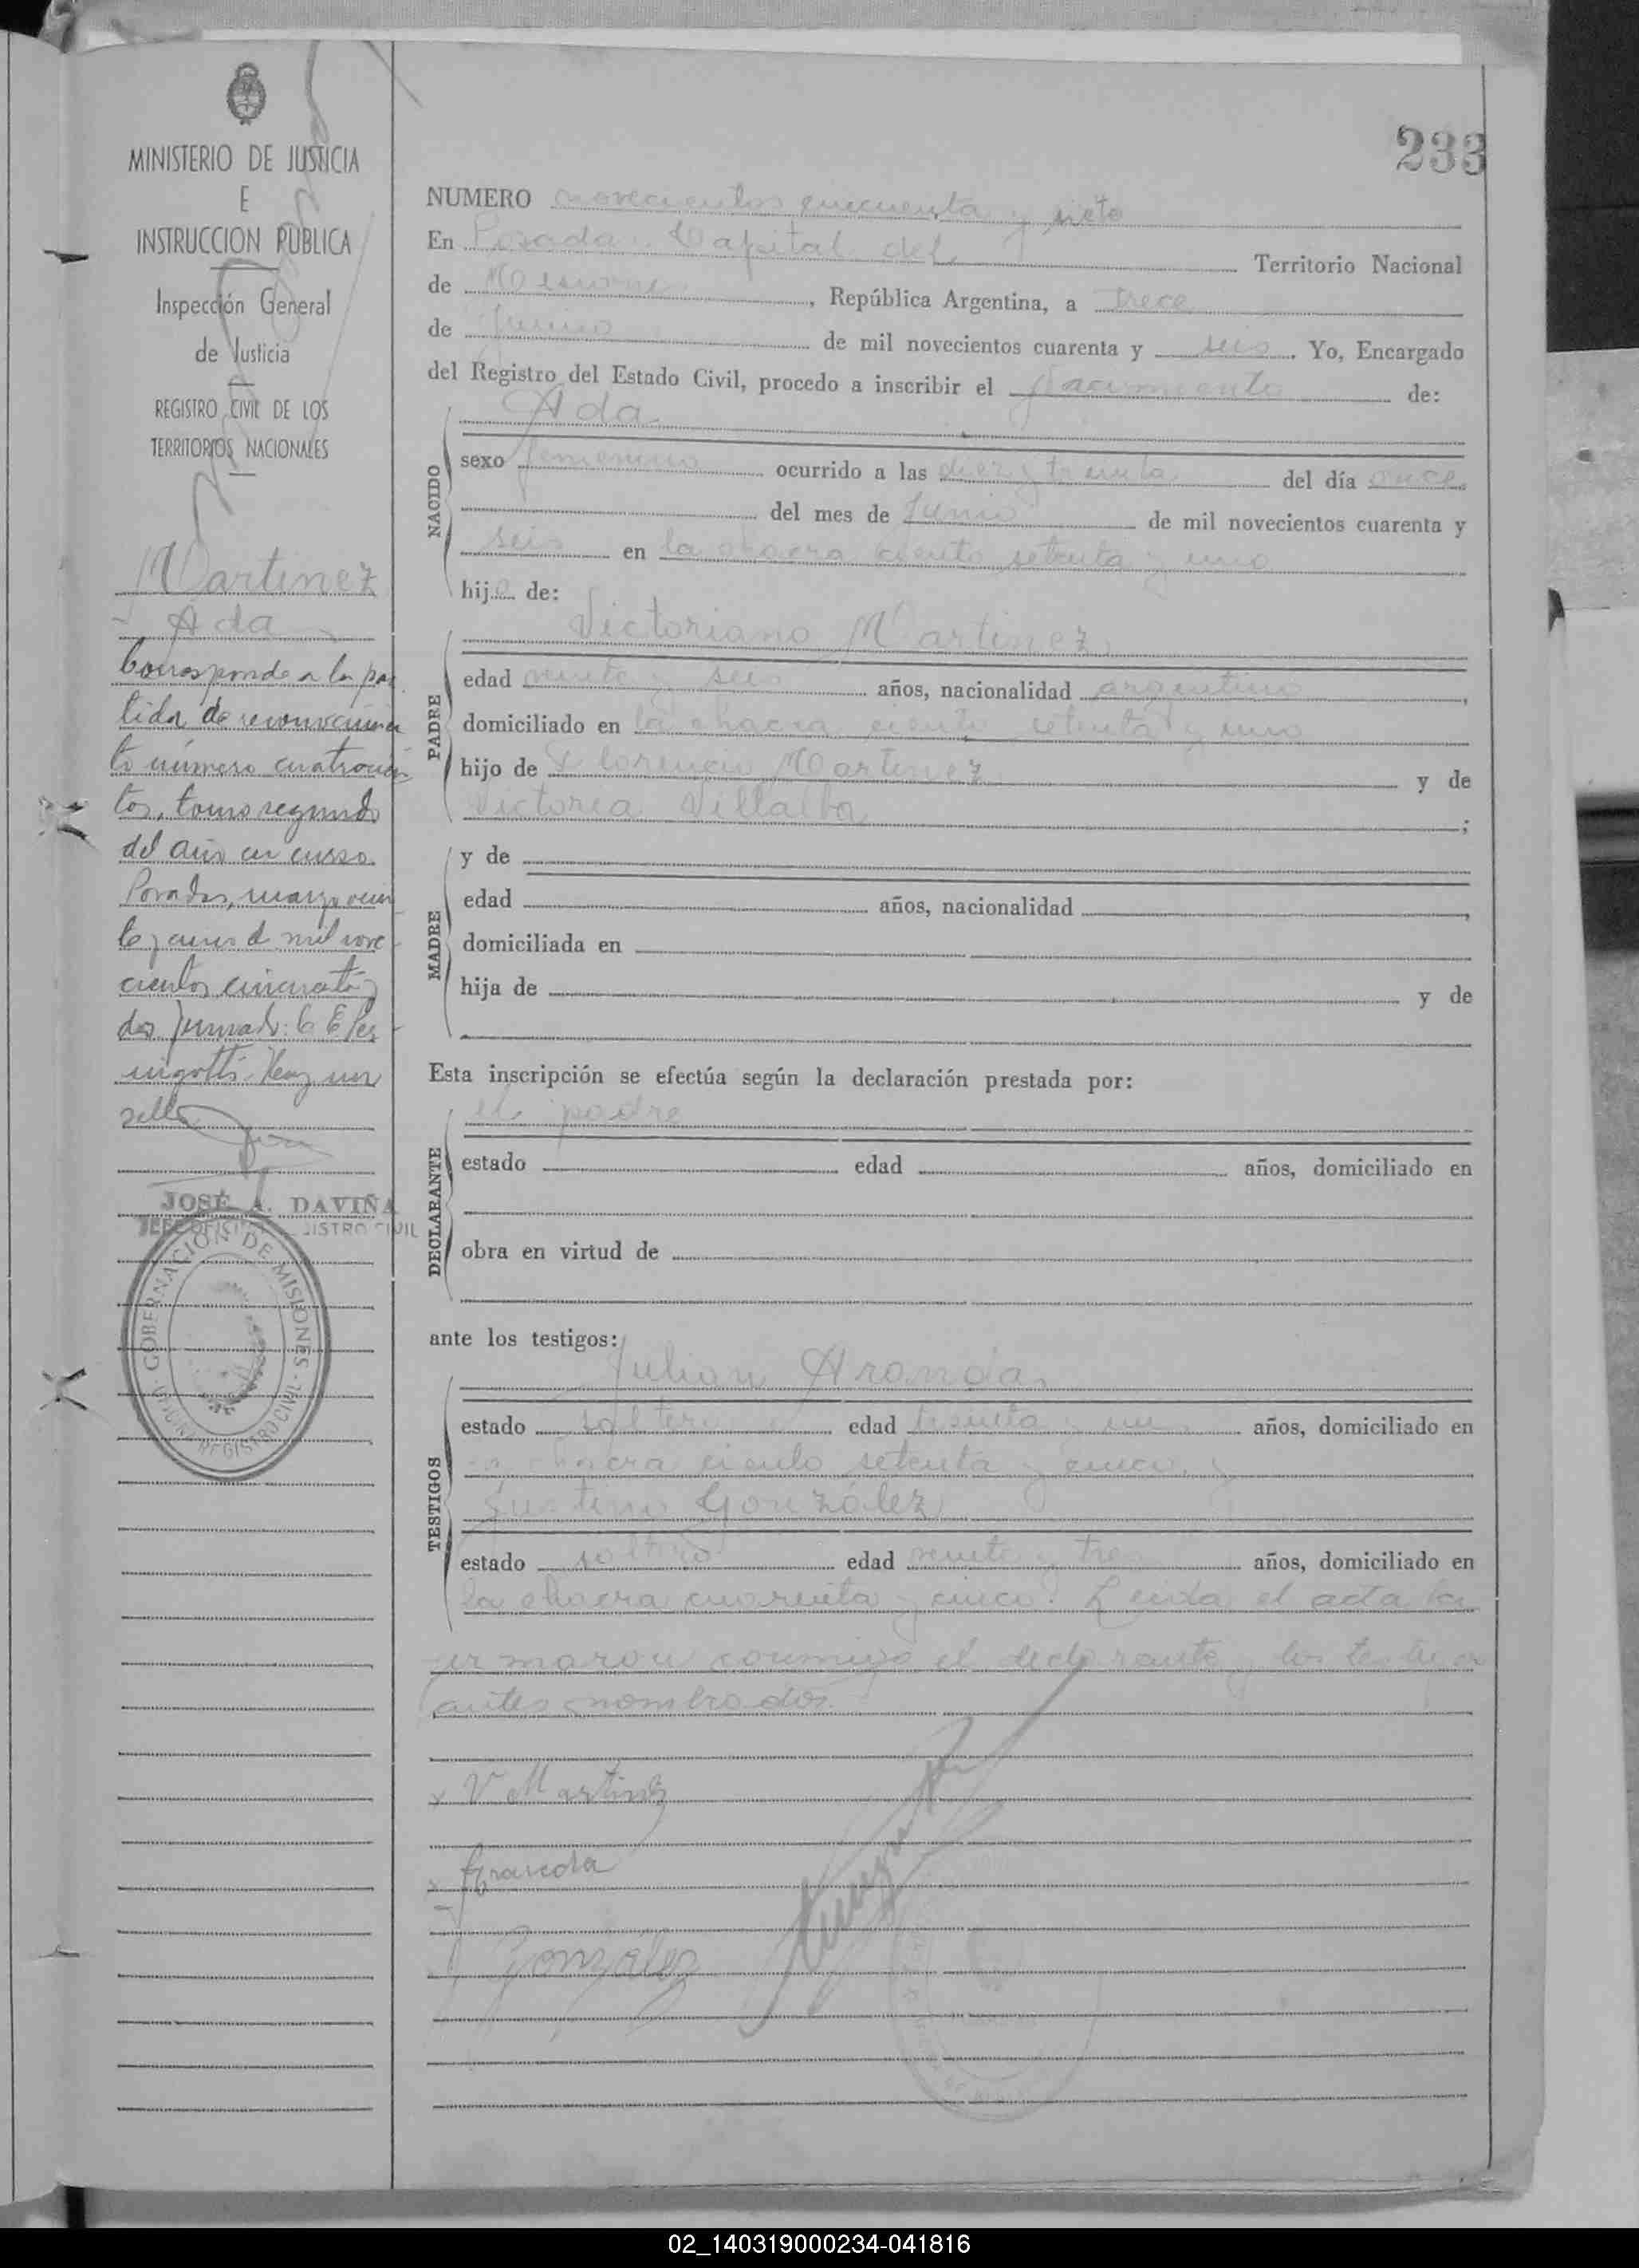 MINISTERIO DE JUSTICIA
E
INSTRUCCION PUBLICA
Inspección General
de Justicia
REGISTRO CIVIL DE LOS
TERRITORIOS NACIONALES
Martinez
Ada
Corresponde a la par
tida de reconocimien
to número cuatrocien
tos, tomo segundo
del año en curso.
Posadas, marzo vein
te y cinco de mil nove
cientos cincuenta y
dos firmado: C E Per
ingotti. Hay un
sello
JOSÉ A. DAVIÑA
JEFE OFICINA REGISTRO CIVIL
GOBERNACION DE MISIONES
OFICINA REGISTRO CIVIL
233
NUMERO novecientos cincuenta y siete
En Posadas Capital del Territorio Nacional
de Misiones, República Argentina, a trece
de Junio de mil novecientos cuarenta y seis. Yo, Encargado
del Registro del Estado Civil, procedo a inscribir el nacimiento de:
NACIDO
Ada
sexo femenino ocurrido a las diez y treinta del día once
del mes de Junio de mil novecientos cuarenta y
seis en la chacra ciento setenta y uno
hija de:
PADRE
Victoriano Martinez
edad veinte y seis años, nacionalidad argentino,
domiciliado en la chacra ciento setenta y uno
hijo de Florencio Martinez y de
Victoria Villalba;
MADRE
y de
edad años, nacionalidad,
domiciliada en
hija de y de
Esta inscripción se efectúa según la declaración prestada por:
DECLARANTE
el padre
estado edad años, domiciliado en
obra en virtud de
ante los testigos:
TESTIGOS
Julian Aranda
estado soltero edad treinta y un años, domiciliado en
la chacra ciento setenta y cinco, y
Justino González
estado soltero edad veinte y tres años, domiciliado en
la chacra cuarenta y cinco. Leida el acta la
firmaron conmigo el declarante y los testigos
antes nombrados.
x V Martinez
x JAranda
J Gonzalez
02_140319000234-041816